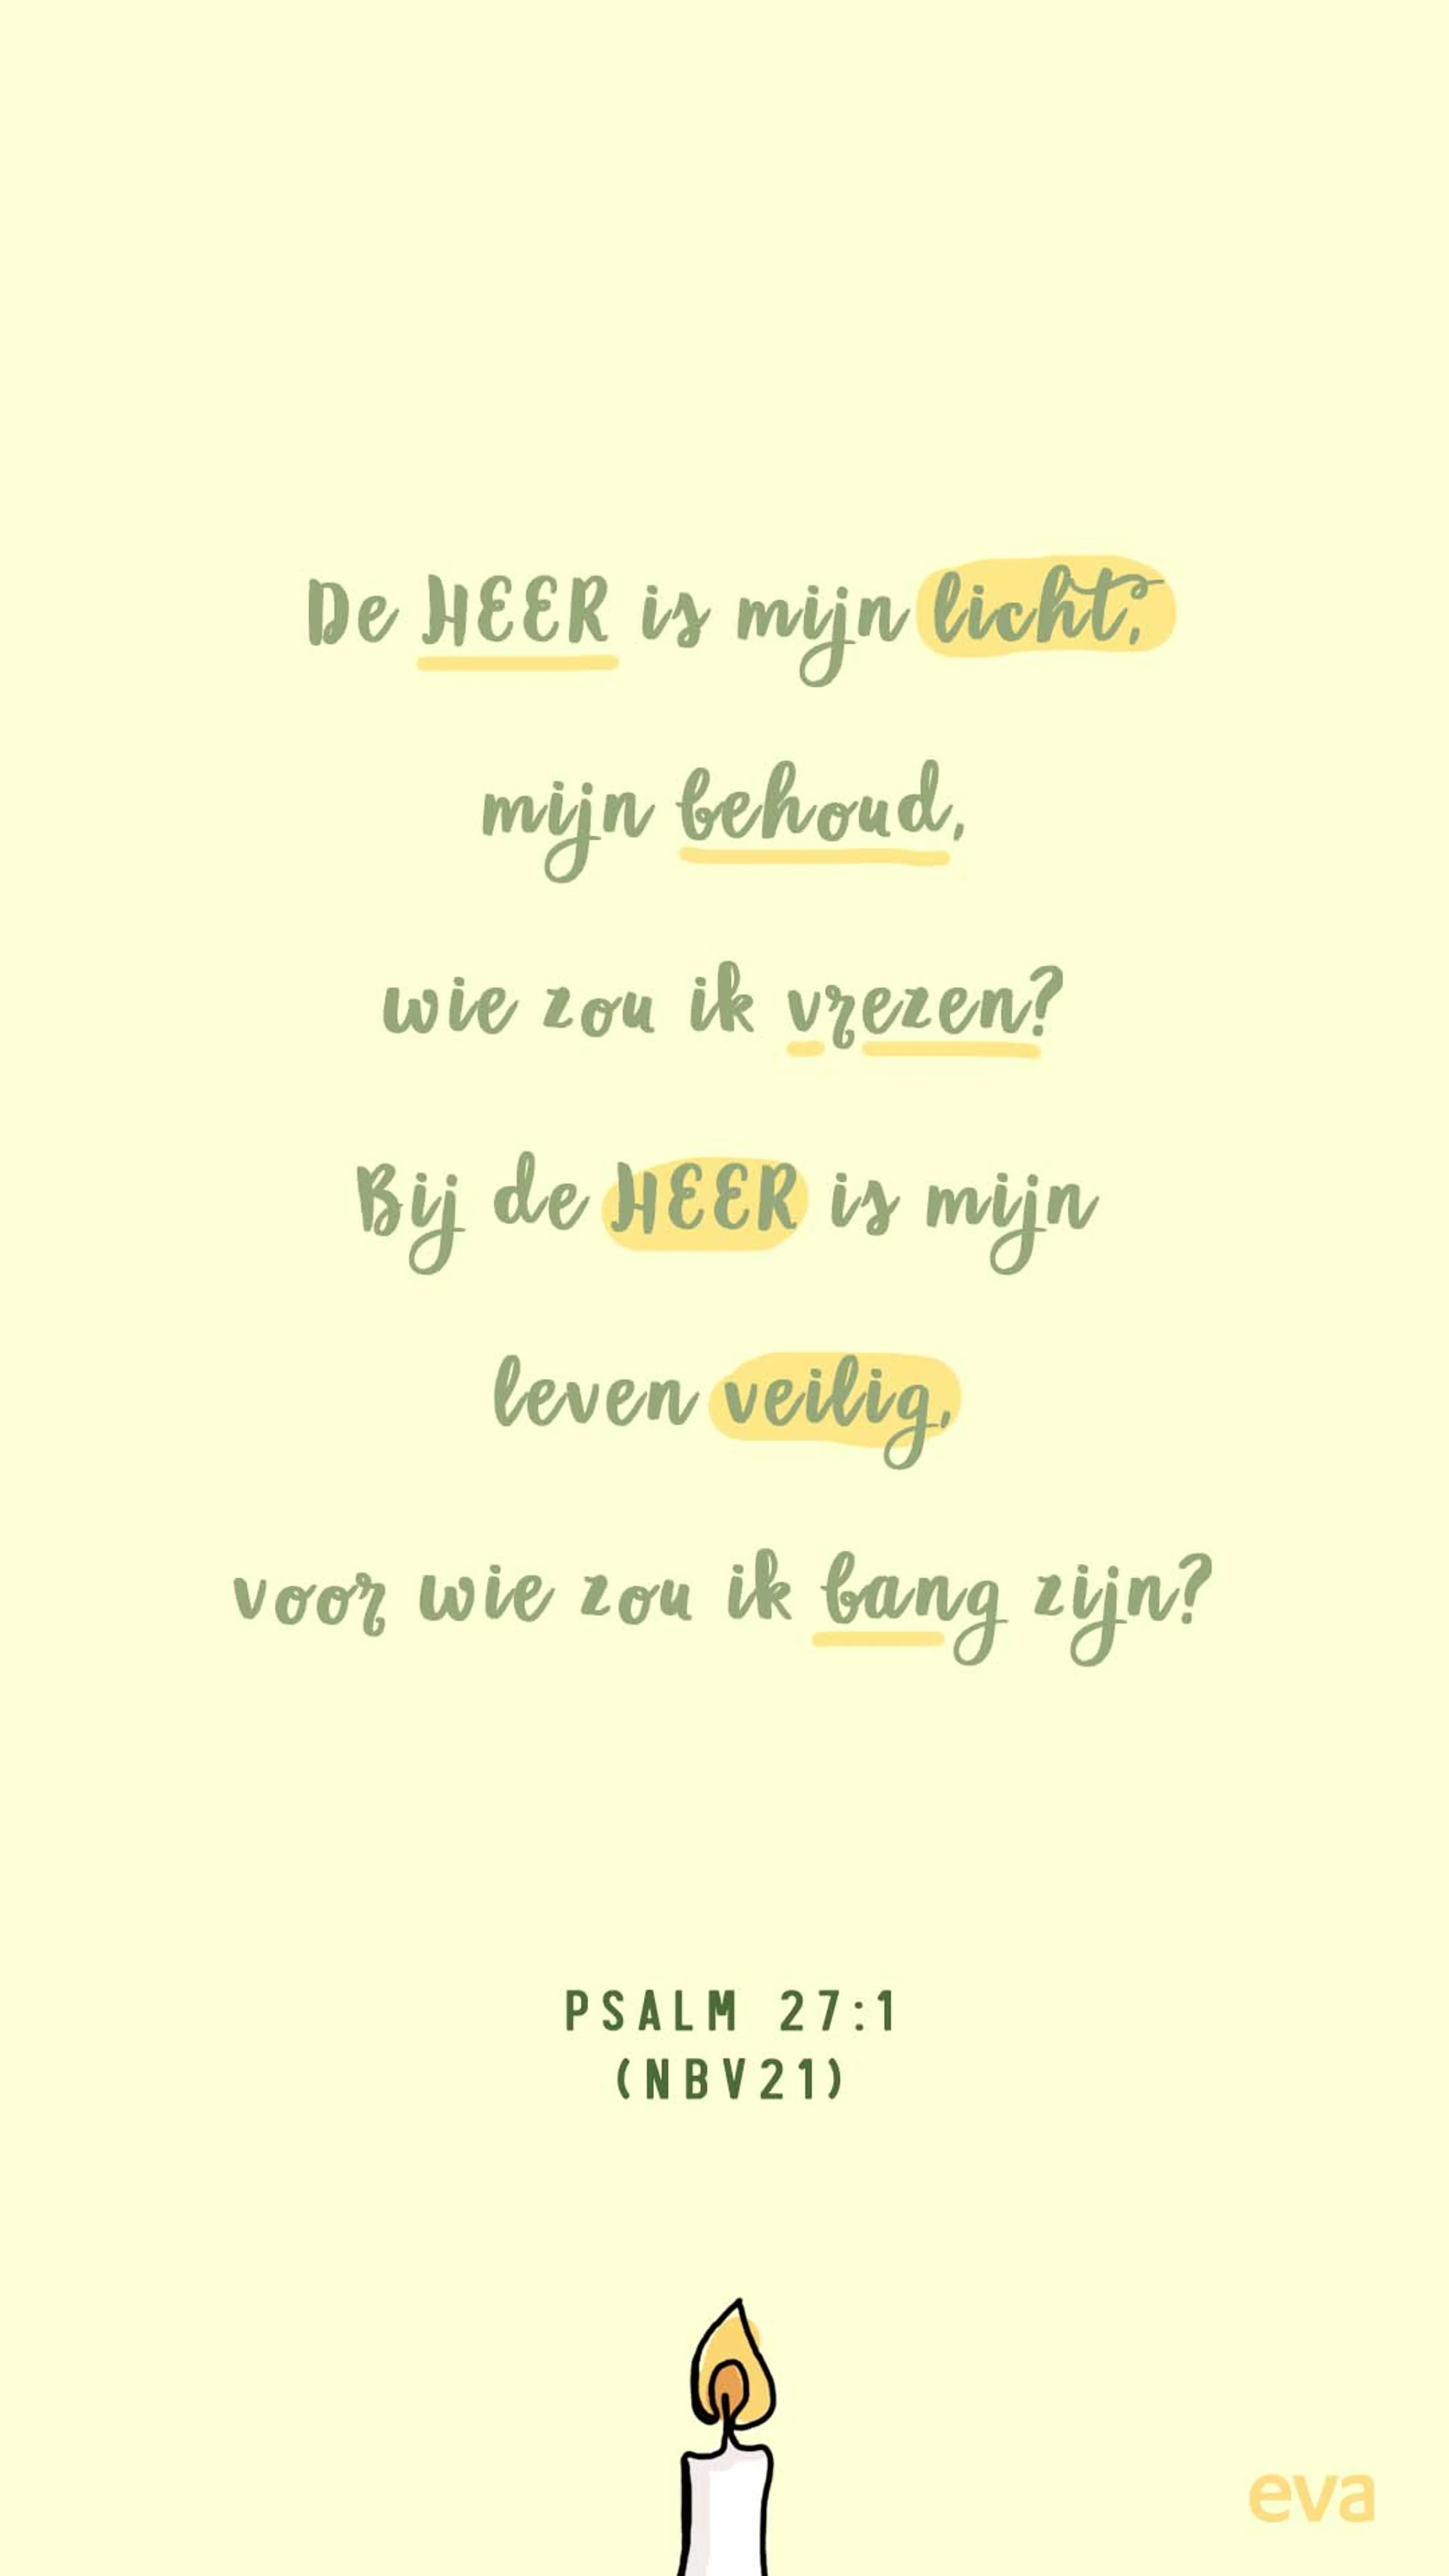 De HEER is mijn licht,
mijn behoud,
wie zou ik vrezen?
Bij de HEER is mijn
leven veilig,
voor wie zou ik bang zijn?
PSALM 27:1
(NBV21)
eva